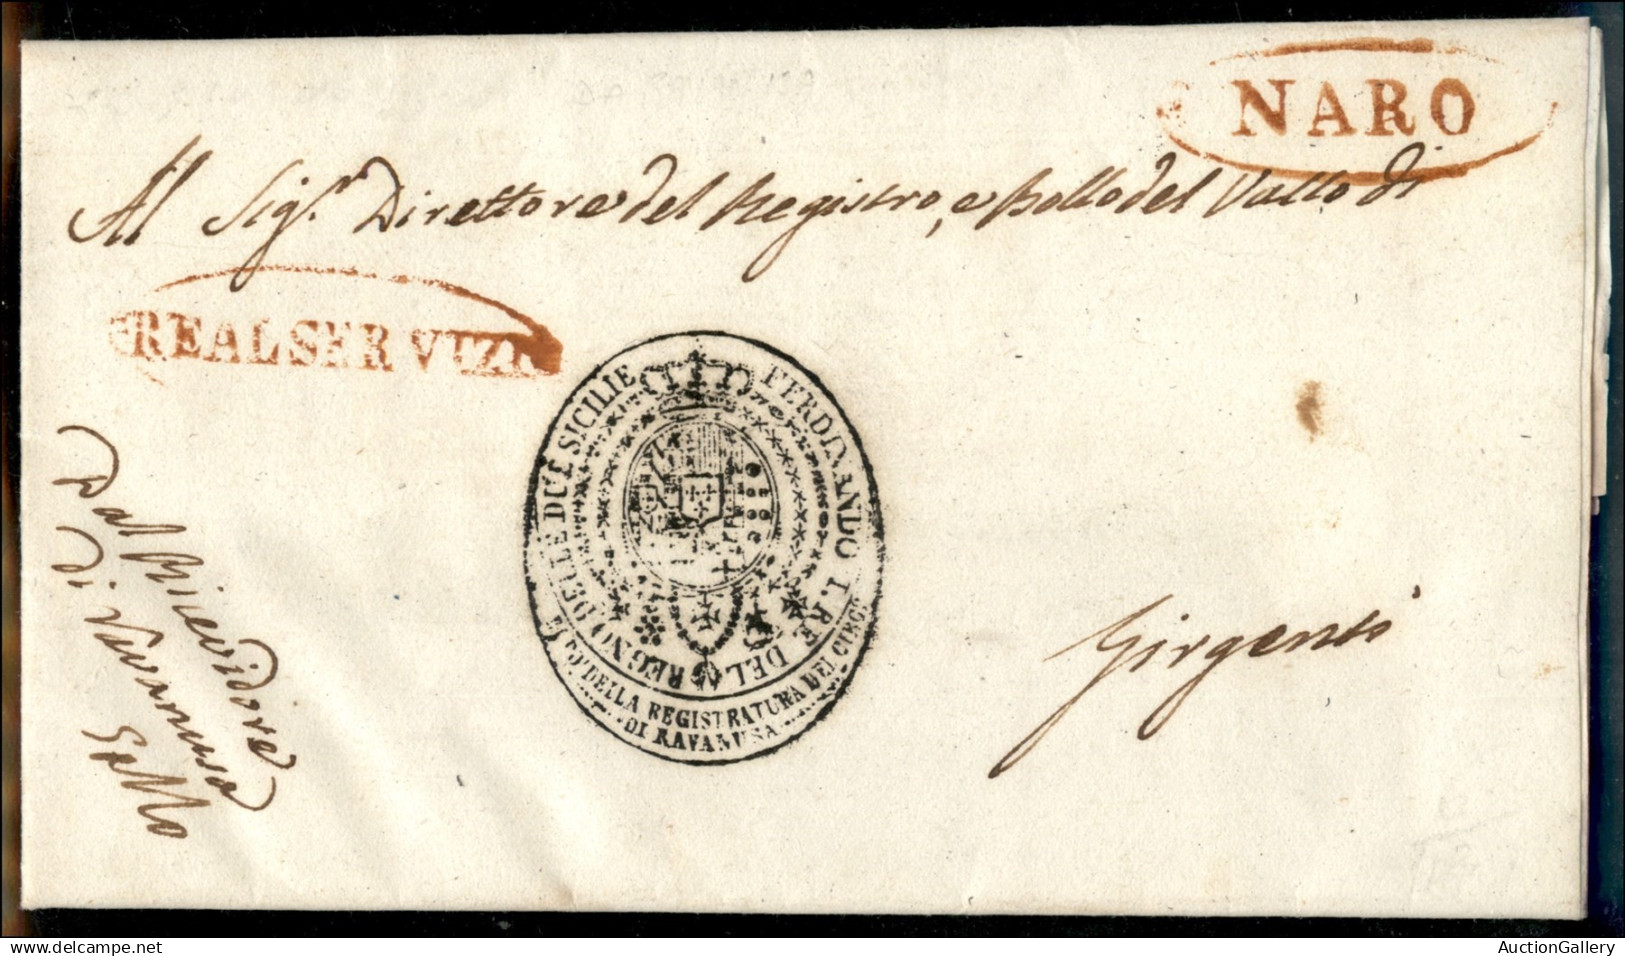 NARO
Al Sig.r Direttore del Registro, e Bollo del Vallo di
REAL SERVIZI
FERDINANDO I. RE DEL REGNO DELLE DUE SICILIE
DELLA REGISTRATURA DEI
DI RAVANUSA
Girgenti
Dal Ricevidore
di Ravanusa
Gallo
AuctionGallery